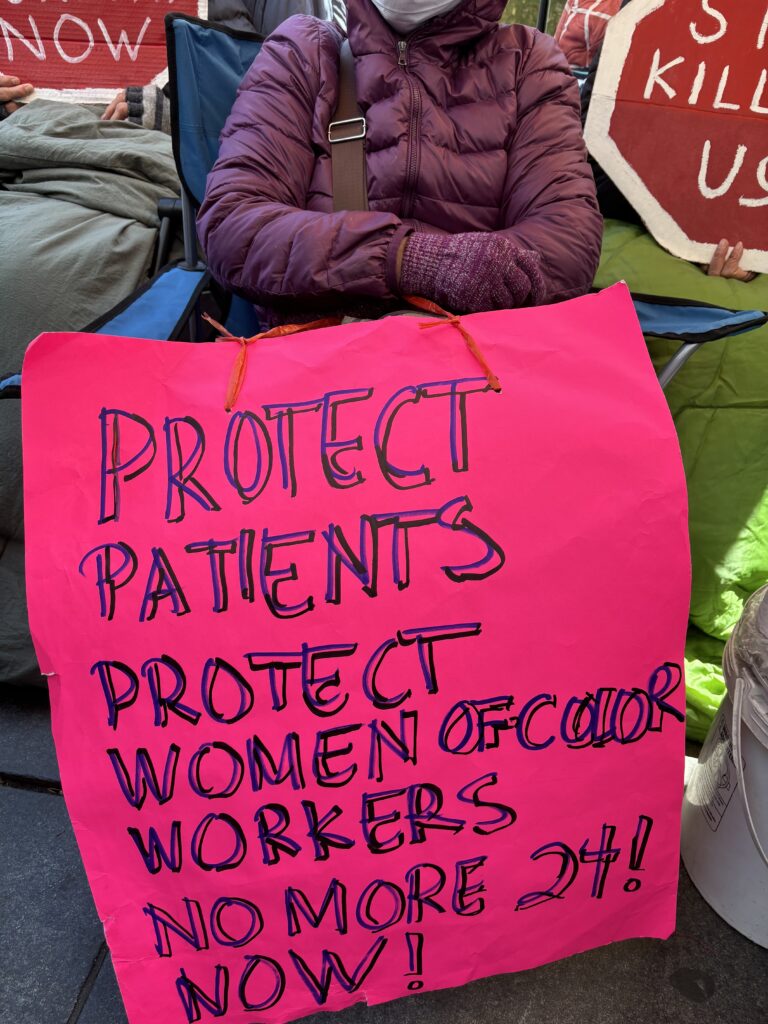 NOW
KILL
US
PROTECT
PATIENTS
PROTECT
WOMEN OF COLOR
WORKERS
NO MORE 24!
NOW!